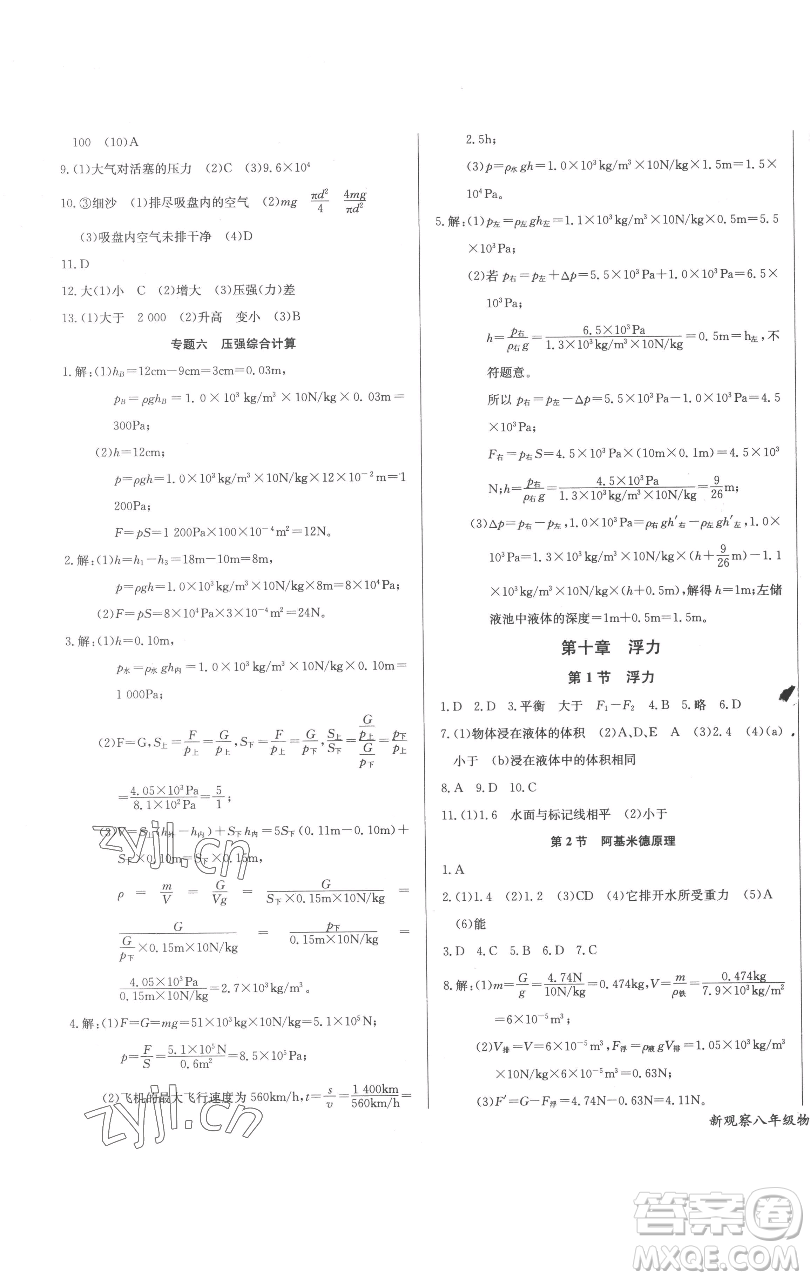 100 (10)A
9.(1)大气对活塞的压力 (2)C (3)9.6×10⁴
10.③细沙 (1)排尽吸盘内的空气 (2)mg πd²/4 4mg/πd²
(3)吸盘内空气未排干净 (4)D
11.D
12.大(1)小 C (2)增大 (3)压强(力)差
13.(1)大于 2 000 (2)升高 变小 (3)B
专题六 压强综合计算
1.解:(1)h_B=12cm−9cm=3cm=0.03m,
p_B=ρgh_B=1.0×10³kg/m³×10N/kg×0.03m=
300Pa;
(2)h=12cm;
p=ρgh=1.0×10³kg/m³×10N/kg×12×10⁻²m=1
200Pa;
F=pS=1 200Pa×100×10⁻⁴m²=12N。
2.解:(1)h=h₁−h₃=18m−10m=8m,
p=ρgh=1.0×10³kg/m³×10N/kg×8m=8×10⁴Pa;
(2)F=pS=8×10⁴Pa×3×10⁻⁴m²=24N。
3.解:(1)h=0.10m,
p水=ρ水gh内=1.0×10³kg/m³×10N/kg×0.10m=
1 000Pa;
(2)F=G,S上=F/p上=G/p上,S下=F/p下=G/p下,S上/S下=(G/p上)/(G/p下)=p下/p上
=4.05×10³Pa/8.1×10²Pa=5/1;
(3)V=S上(h外−h内)+S下h内=5S下(0.11m−0.10m)+
S下×0.10m=S下×0.15m,
ρ=m/V=G/Vg=G/(S下×0.15m×10N/kg)=
G/(G/p下×0.15m×10N/kg)=p下/(0.15m×10N/kg)=
4.05×10³Pa/(0.15m×10N/kg)=2.7×10³kg/m³。
4.解:(1)F=G=mg=51×10³kg×10N/kg=5.1×10⁵N;
p=F/S=5.1×10⁵N/0.6m²=8.5×10⁵Pa;
(2)飞机的最大飞行速度为560km/h,t=s/v=1 400km/560km/h=
2.5h;
(3)p=ρ水gh=1.0×10³kg/m³×10N/kg×1.5m=1.5×
10⁴Pa。
5.解:(1)p左=ρ左gh左=1.1×10³kg/m³×10N/kg×0.5m=5.5
×10³Pa;
(2)若p右=p左+Δp=5.5×10³Pa+1.0×10³Pa=6.5×10³
Pa;
h=p右/ρ右g=6.5×10³Pa/(1.3×10³kg/m³×10N/kg)=0.5m=h左,不
符题意。
所以p右=p左−Δp=5.5×10³Pa−1.0×10³Pa=4.5
×10³Pa;
F右=p右S=4.5×10³Pa×(10m×0.1m)=4.5×10³
N;h=p右/ρ右g=4.5×10³Pa/(1.3×10³kg/m³×10N/kg)=9/26m;
(3)Δp=p右−p左,Δp=ρ右gh′右−ρ左gh′左,1.0×
10³Pa=1.3×10³kg/m³×10N/kg×(h+9/26m)−1.1
×10³kg/m³×10N/kg×(h+0.5m),解得h=1m;左储
液池中液体的深度=1m+0.5m=1.5m。
第十章 浮力
第1节 浮力
1.D 2.D 3.平衡 大于 F₁−F₂ 4.B 5.略 6.D
7.(1)物体浸在液体的体积 (2)A、E A (3)2.4 (4)(a)
小于 (b)浸在液体中的体积相同
8.A 9.D 10.C
11.(1)1.6 水面与标记线相平 (2)小于
第2节 阿基米德原理
1.A
2.(1)1.4 (2)1.2 (3)CD (4)它排开水所受重力 (5)A
(6)能
3.D 4.C 5.D 6.D 7.C
8.解:(1)m=G/g=4.74N/10N/kg=0.474kg,V=m/ρ铁=0.474kg/7.9×10³kg/m²
=6×10⁻⁵m³;
(2)V排=V=6×10⁻⁵m³,F浮=ρ液gV排=1.05×10³kg/m³
×10N/kg×6×10⁻⁵m³=0.63N;
(3)F′=G−F浮=4.74N−0.63N=4.11N。
新观察八年级物
zyjl.cn
zyjl.cn
答案圈
MXQE.COM